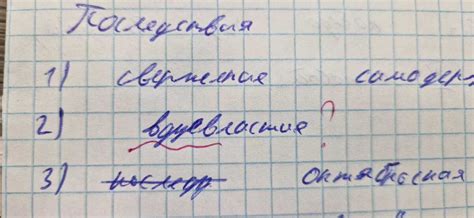 Последствия
1) свержение самодер
2) вдуевластие ?
3) октябрьская